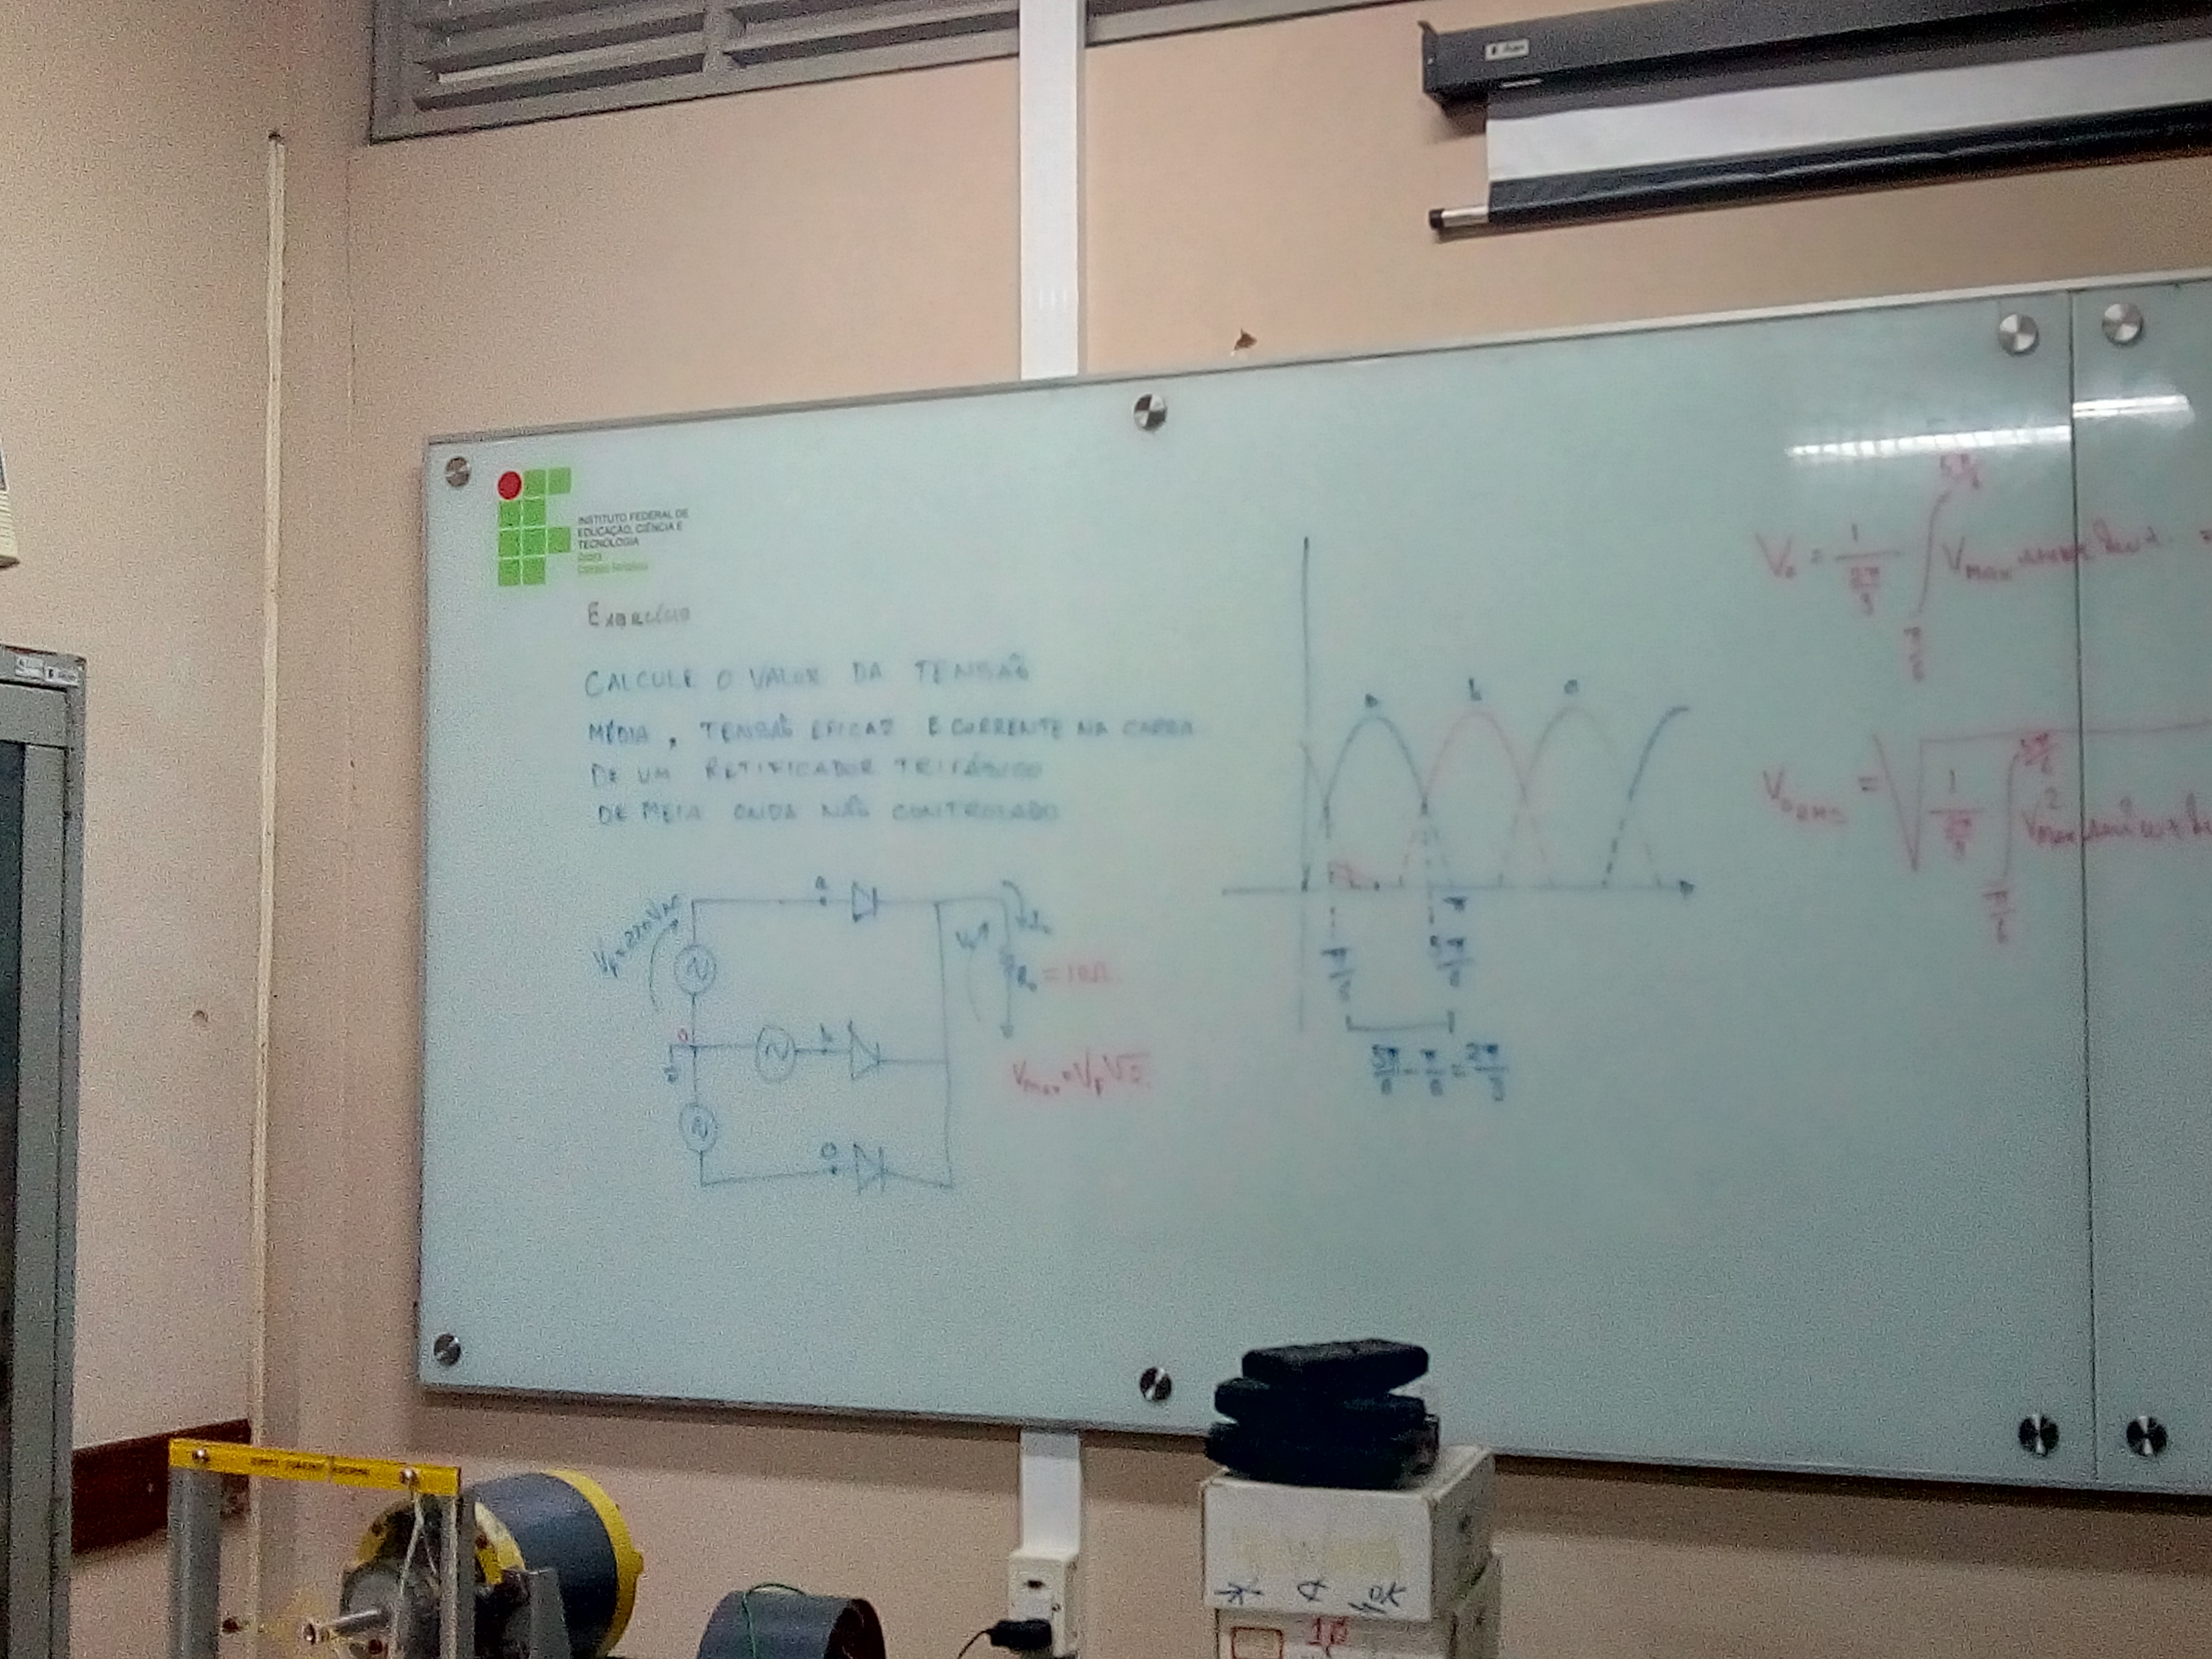 INSTITUTO FEDERAL DE
EDUCAÇÃO, CIÊNCIA E
TECNOLOGIA
Ceará
Campus Fortaleza
EXERCÍCIO
CALCULE O VALOR DA TENSÃO
MÉDIA, TENSÃO EFICAZ E CORRENTE NA CARGA
DE UM RETIFICADOR TRIFÁSICO
DE MEIA ONDA NÃO CONTROLADO
VF=220VAC
a
b
R₀ = 10Ω
Vmax=VF√2
b
π
π/6
5π/6
5π/6 - π/6 = 2π/3
V₀ = 1/(2π/3) ∫ π/6 5π/6 VMAX senωt dωt =
V₀RMS = √ 1/(2π/3) ∫ π/6 5π/6 V²MAX sen²ωt
10K
1Ø